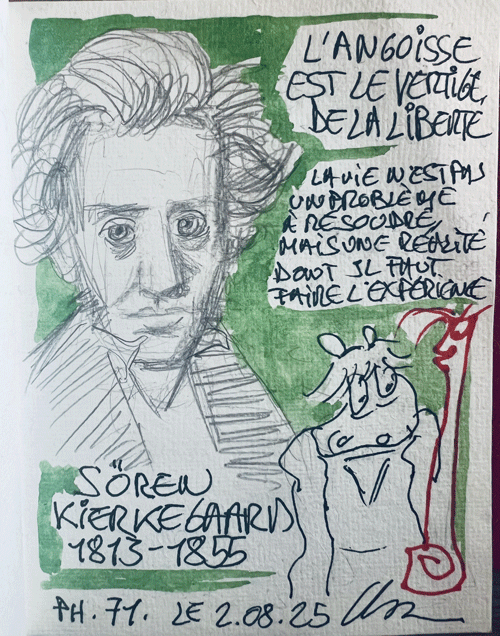 L'ANGOISSE
EST LE VERTIGE
DE LA LIBERTÉ
LA VIE N'EST PAS
UN PROBLÈME
À RÉSOUDRE,
MAIS UNE RÉALITÉ
DONT IL FAUT
FAIRE L'EXPÉRIENCE
SÖREN
KIERKEGAARD
1813-1855
PH. 71. LE 2.08.25